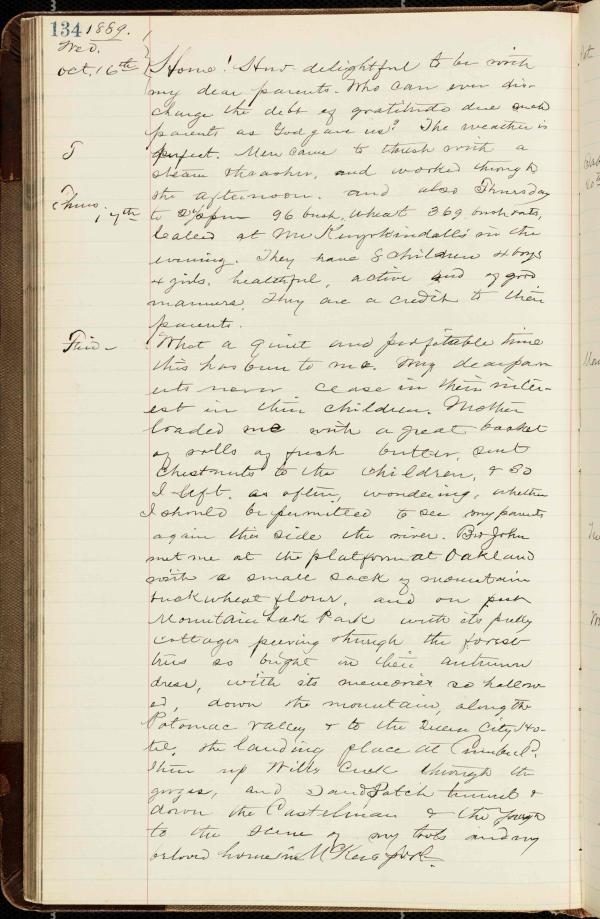 134 1889.
Wed.
Oct. 16th Home! How delightful to be with
my dear parents. Who can ever dis-
charge the debt of gratitude due such
parents as God gave us? The weather is
perfect. Men came to thresh with a
steam thrasher, and worked through
the afternoon, and also Thursday
Thurs. 17th
to 96 bush. wheat 369 bush oats,
Called at Mr in the
evening. They have 8 children 4 boys
4 girls, healthful, active and of good
manners. They are a credit to their
parents.
Frid - What a quiet and profitable time
this has been to me. My dear par
ents never cease in their inter-
est in their children. Mother
loaded me with a great basket
of rolls of fresh butter, sent
chestnuts to the children, & so
I left, as often, wondering, whether
I should be permitted to see my parents
again this side the river. Bro John
met me at the platform at Oakland
with a small sack of mountain
buckwheat flour, and on past
Mountain Lake Park with its pretty
cottages peering through the forest
trees so bright in their autumn
dress, with its memories so hallow
ed, down the mountain, along the
Potomac valley & to the Queen City Ho-
tel, the landing place at Cumberl'd.
Then up Wills Creek through the
gorges, and Sand Patch tunnel &
down the Castelman & the Yough
to the scene of my toils and my
beloved home in McKeesport.